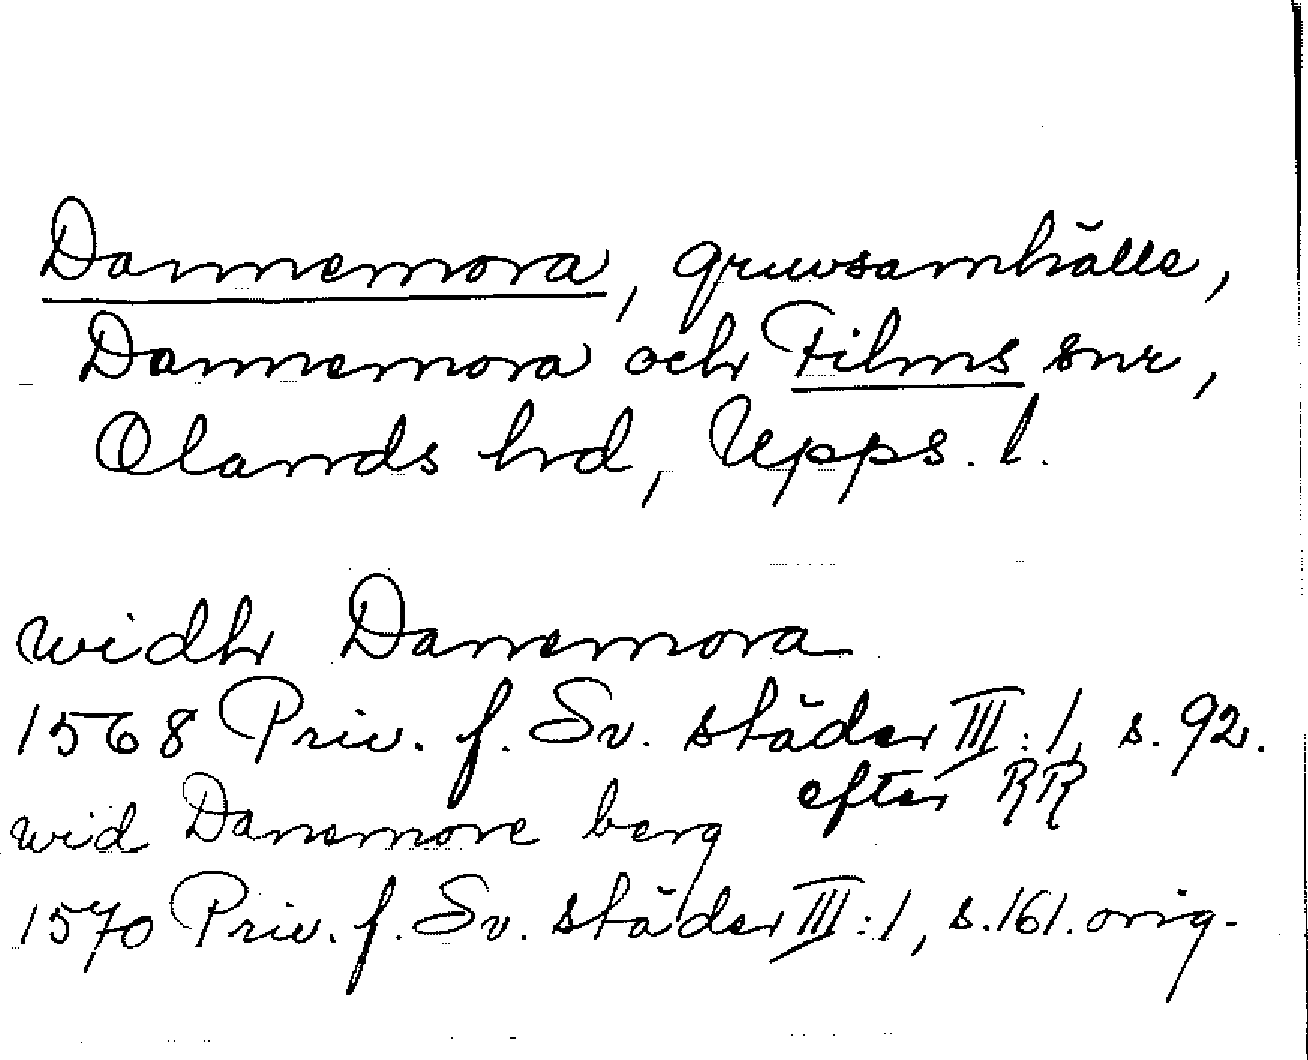 Dannemora, gruvsamhälle,
Dannemora och Films snr,
Olands hrd, Upps. l.
widhr Danemora
1568 Priv. f. Sv. städer III:1, s. 92.
efter RR
wid Danemore berg
1570 Priv. f. Sv. städer III:1, s. 161. orig.